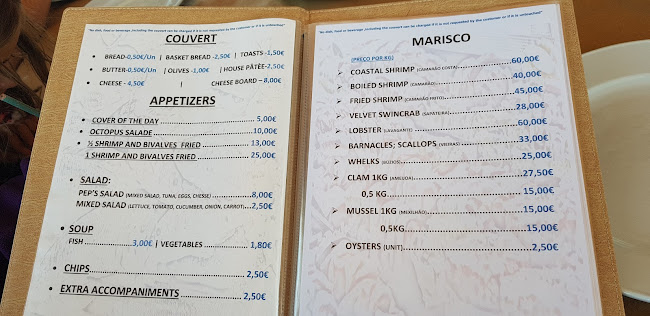 "No dish, food or beverage ,including the couvert can be charged if it is not requested by the customer or if it is unlimited"
COUVERT
• BREAD-0,50€/Un | BASKET BREAD -2,50€ | TOASTS -1,50€
• BUTTER-0,50€/Un | OLIVES -1,00€ | HOUSE PÂTÉE-2,50€
• CHEESE – 4,50€ | CHEESE BOARD – 8,00€
APPETIZERS
• COVER OF THE DAY 5,00€
• OCTOPUS SALADE 10,00€
• ½ SHRIMP AND BIVALVES FRIED 13,00€
1 SHRIMP AND BIVALVES FRIED 25,00€
• SALAD:
PEP'S SALAD (MIXED SALAD, TUNA, EGGS, CHESSE) 8,00€
MIXED SALAD (LETTUCE, TOMATO, CUCUMBER, ONION, CARROT) 2,50€
• SOUP
FISH 3,00€ | VEGETABLES 1,80€
• CHIPS 2,50€
• EXTRA ACCOMPANIMENTS 2,50€
"No dish, food or beverage ,including the couvert can be charged if it is not requested by the customer or if it is unlimited"
MARISCO
(PREÇO POR KG)
➢ COASTAL SHRIMP (CAMARÃO COSTA) 60,00€
➢ BOILED SHRIMP (CAMARÃO) 40,00€
➢ FRIED SHRIMP (CAMARÃO FRITO) 45,00€
➢ VELVET SWINCRAB (SAPATEIRA) 28,00€
➢ LOBSTER (LAVAGANTE) 60,00€
➢ BARNACLES; SCALLOPS (VIEIRAS) 33,00€
➢ WHELKS (BÚZIOS) 25,00€
➢ CLAM 1KG (AMEIJOA) 27,50€
0,5 KG 15,00€
➢ MUSSEL 1KG (MEXILHÃO) 15,00€
0,5KG 15,00€
➢ OYSTERS (UNIT) 2,50€